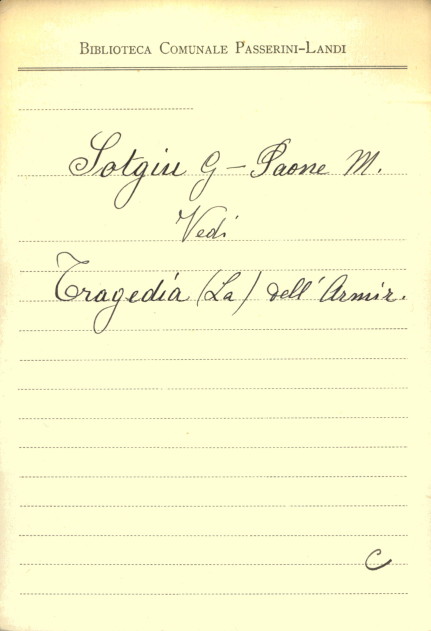 Biblioteca Comunale Passerini-Landi
Sotgiu G - Paone M.
Vedi
Tragedia (La) dell'Armir.
C